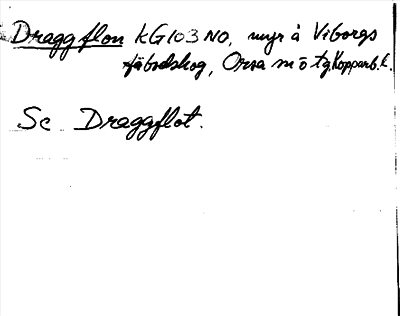 Draggflon KG103NO, myr å Viborgs
fäbodskog, Orsa m ö tg, Kopparb.l.
Se Draggflot.